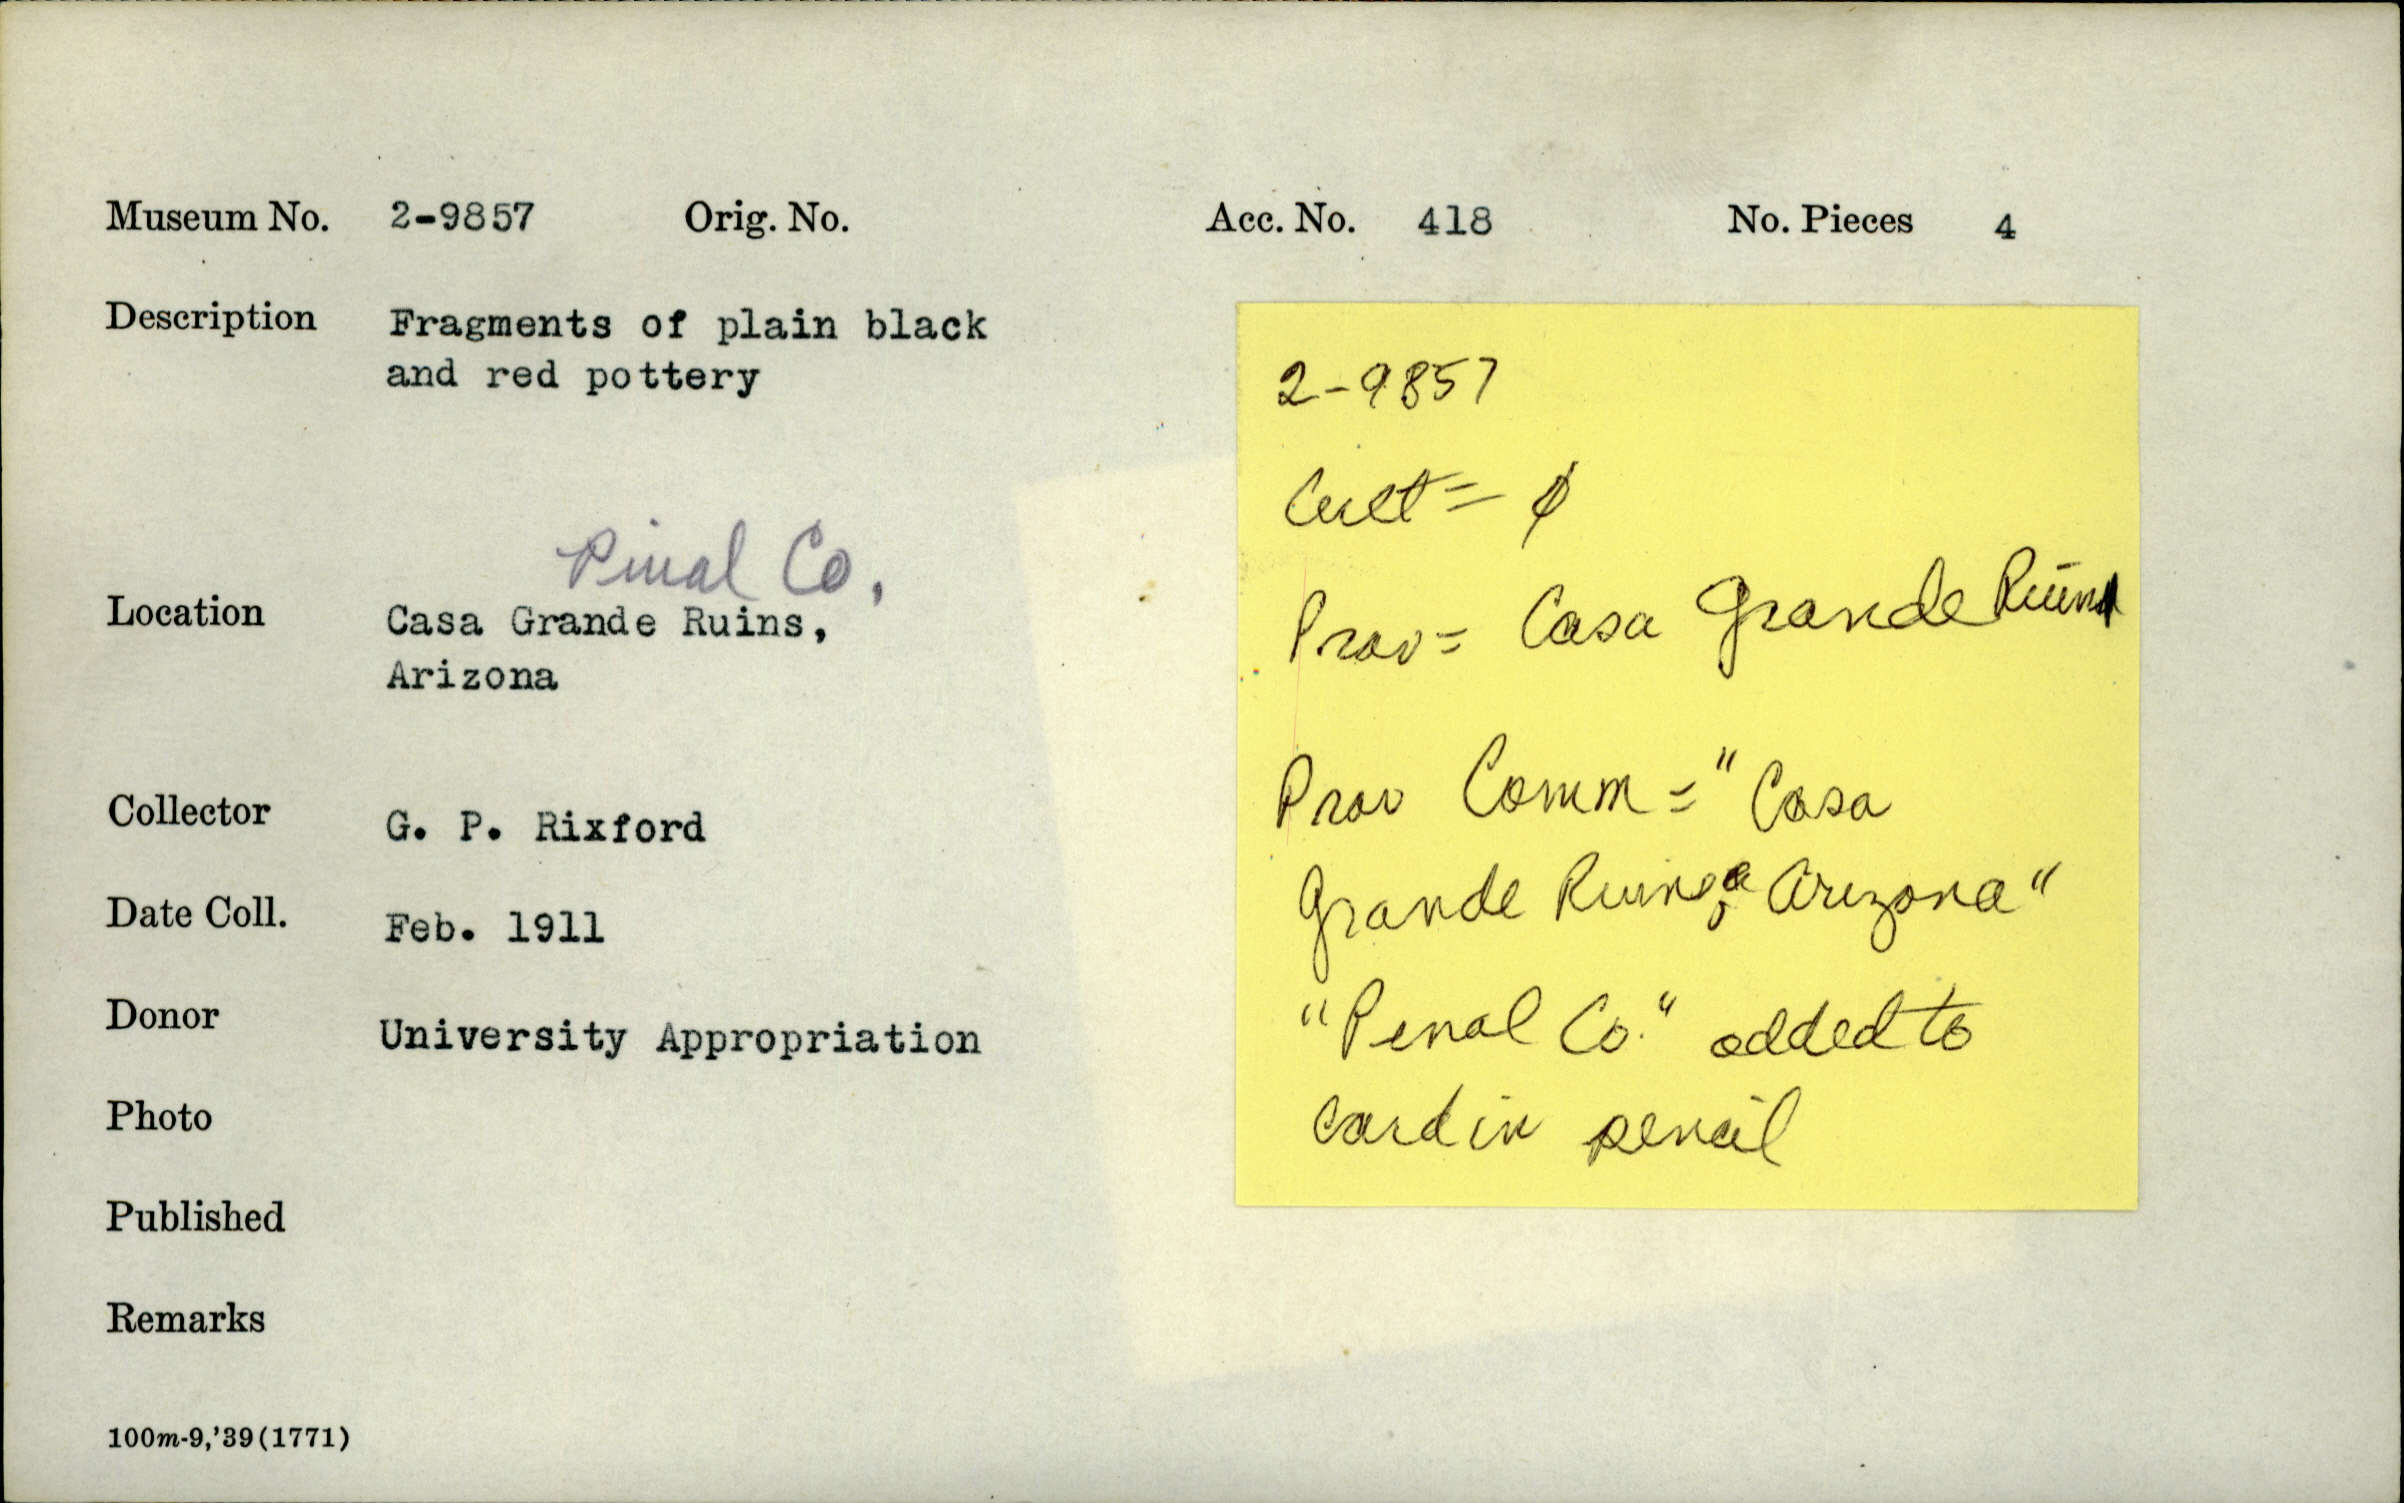 Museum No. 2-9857 Orig. No. Acc. No. 418 No. Pieces 4
Description Fragments of plain black
and red pottery
Pinal Co.
Location Casa Grande Ruins,
Arizona
Collector G. P. Rixford
Date Coll. Feb. 1911
Donor University Appropriation
Photo
Published
Remarks
100m-9,'39(1771)
2-9857
Cult = ∅
Prov = Casa Grande Ruins
Prov Comm = "Casa
Grande Ruins, Arizona"
"Penal Co." added to
card in pencil